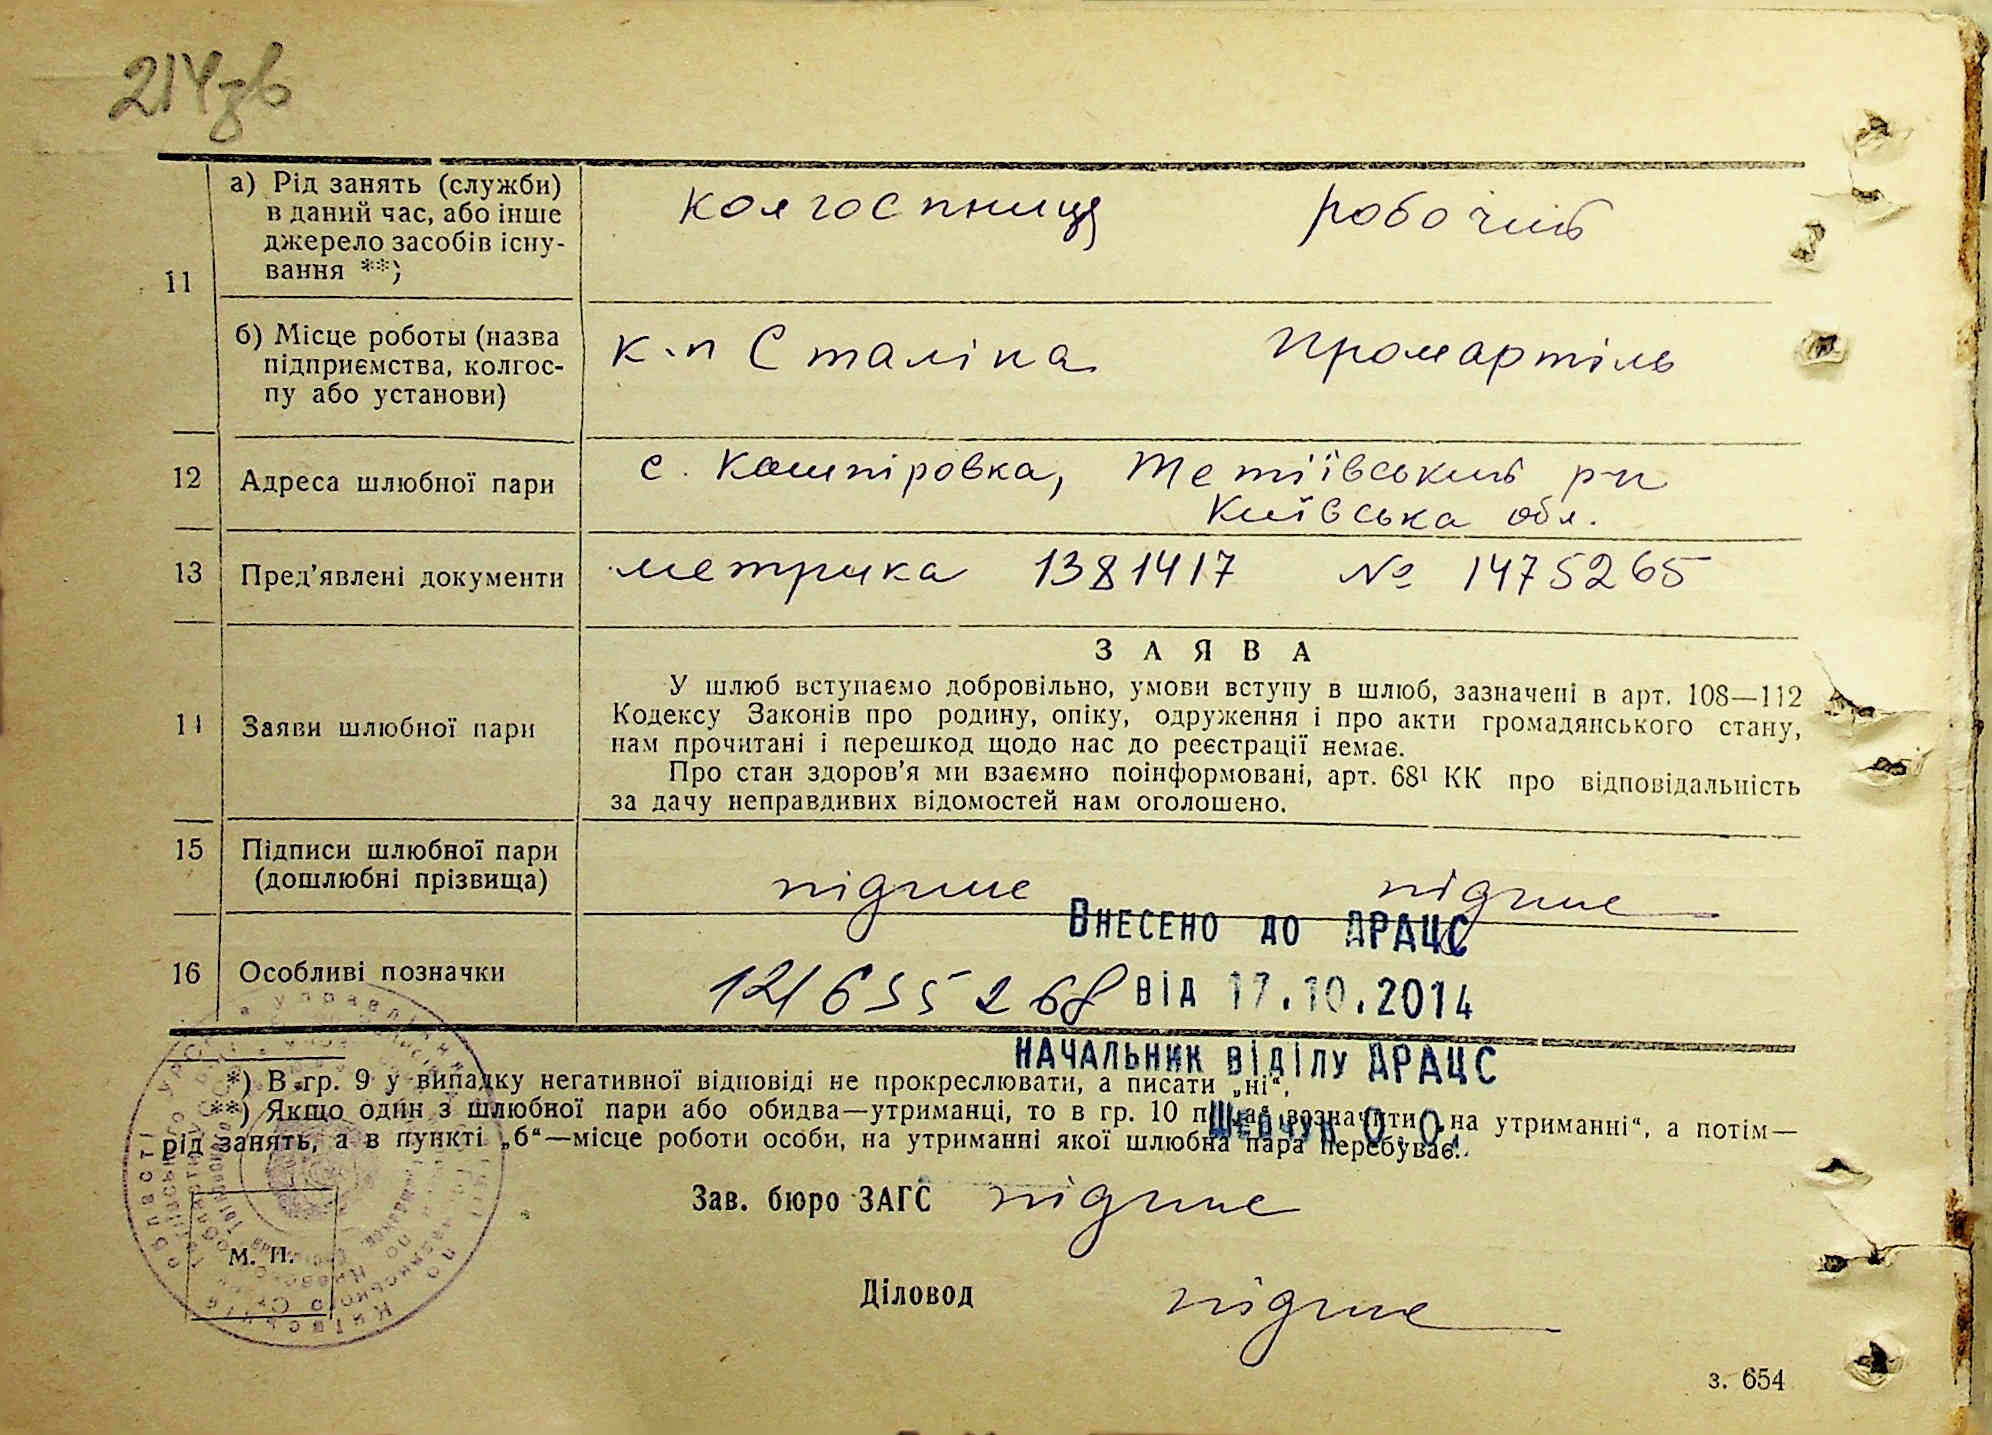 214зв
11
а) Рід занять (служби)
в даний час, або інше
джерело засобів існу-
вання **)
колгоспниця робочий
б) Місце роботы (назва
підприємства, колгос-
пу або установи)
к-п Сталіна Промартіль
12 Адреса шлюбної пари
с. Кашпіровка, Тетіївський р-н
Київська обл.
13 Пред’явлені документи метрика 1381417 № 1475265
14 Заяви шлюбної пари
ЗАЯВА
У шлюб вступаємо добровільно, умови вступу в шлюб, зазначені в арт. 108—112
Кодексу Законів про родину, опіку, одруження і про акти громадянського стану,
нам прочитані і перешкод щодо нас до реєстрації немає.
Про стан здоров’я ми взаємно поінформовані, арт. 68¹ КК про відповідальність
за дачу неправдивих відомостей нам оголошено.
15 Підписи шлюбної пари
(дошлюбні прізвища)
підпис підпис
Внесено до ДРАЦС
16 Особливі позначки
від 17.10.2014
НАЧАЛЬНИК ВІДІЛУ ДРАЦС
*) В гр. 9 у випадку негативної відповіді не прокреслювати, а писати „ні“.
**) Якщо один з шлюбної пари або обидва—утриманці, то в гр. 10 зазначити на утриманні“, а потім—
рід занять, а в пункті „б“—місце роботи особи, на утриманні якої шлюбна пара перебуває.
О. О.
Зав. бюро ЗАГС підпис
М. П.
Діловод підпис
з. 654